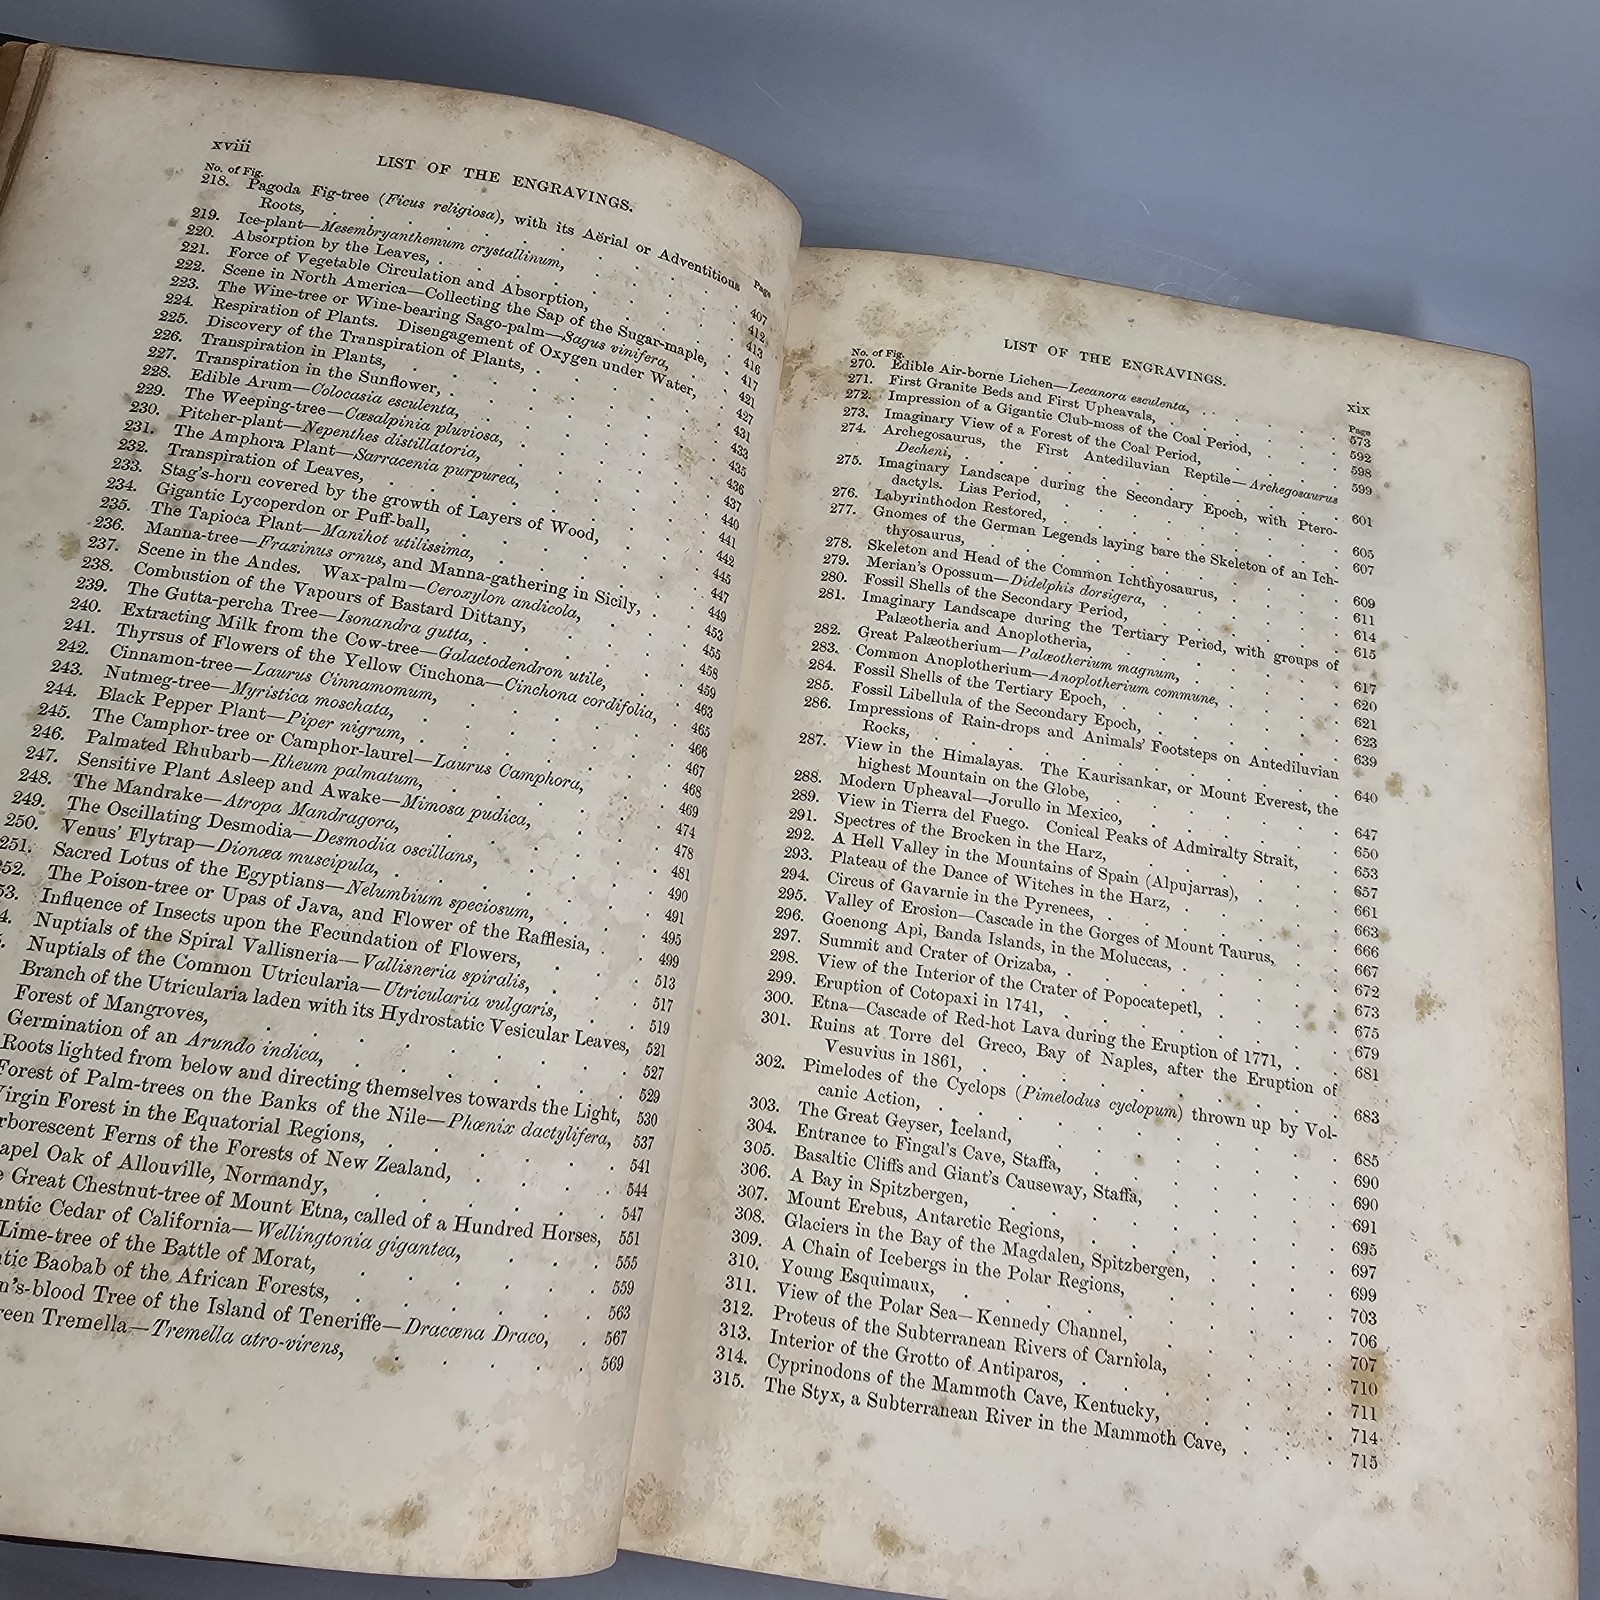 xviii
LIST OF THE ENGRAVINGS.
No. of Fig.
Page
218. Pagoda Fig-tree (Ficus religiosa), with its Aërial or Adventitious
Roots, 407
219. Ice-plant—Mesembryanthemum crystallinum, 412
220. Absorption by the Leaves, 413
221. Force of Vegetable Circulation and Absorption, 416
222. Scene in North America—Collecting the Sap of the Sugar-maple, 417
223. The Wine-tree or Wine-bearing Sago-palm—Sagus vinifera, 421
224. Respiration of Plants. Disengagement of Oxygen under Water, 427
225. Discovery of the Transpiration of Plants, 431
226. Transpiration in Plants, 433
227. Transpiration in the Sunflower, 435
228. Edible Arum—Colocasia esculenta, 436
229. The Weeping-tree—Cæsalpinia pluviosa, 437
230. Pitcher-plant—Nepenthes distillatoria, 440
231. The Amphora Plant—Sarracenia purpurea, 441
232. Transpiration of Leaves, 442
233. Stag's-horn covered by the growth of Layers of Wood, 445
234. Gigantic Lycoperdon or Puff-ball, 447
235. The Tapioca Plant—Manihot utilissima, 449
236. Manna-tree—Fraxinus ornus, and Manna-gathering in Sicily, 453
237. Scene in the Andes. Wax-palm—Ceroxylon andicola, 455
238. Combustion of the Vapours of Bastard Dittany, 458
239. The Gutta-percha Tree—Isonandra gutta, 459
240. Extracting Milk from the Cow-tree—Galactodendron utile, 463
241. Thyrsus of Flowers of the Yellow Cinchona—Cinchona cordifolia, 465
242. Cinnamon-tree—Laurus Cinnamomum, 466
243. Nutmeg-tree—Myristica moschata, 467
244. Black Pepper Plant—Piper nigrum, 468
245. The Camphor-tree or Camphor-laurel—Laurus Camphora, 469
246. Palmated Rhubarb—Rheum palmatum, 474
247. Sensitive Plant Asleep and Awake—Mimosa pudica, 478
248. The Mandrake—Atropa Mandragora, 481
249. The Oscillating Desmodia—Desmodia oscillans, 490
250. Venus' Flytrap—Dionæa muscipula, 491
251. Sacred Lotus of the Egyptians—Nelumbium speciosum, 495
252. The Poison-tree or Upas of Java, and Flower of the Rafflesia, 499
53. Influence of Insects upon the Fecundation of Flowers, 513
4. Nuptials of the Spiral Vallisneria—Vallisneria spiralis, 517
Nuptials of the Common Utricularia—Utricularia vulgaris, 519
Branch of the Utricularia laden with its Hydrostatic Vesicular Leaves, 521
Forest of Mangroves, 527
Germination of an Arundo indica, 529
Roots lighted from below and directing themselves towards the Light, 530
Forest of Palm-trees on the Banks of the Nile—Phœnix dactylifera, 537
Virgin Forest in the Equatorial Regions, 541
rborescent Ferns of the Forests of New Zealand, 544
apel Oak of Allouville, Normandy, 547
e Great Chestnut-tree of Mount Etna, called of a Hundred Horses, 551
antic Cedar of California—Wellingtonia gigantea, 555
Lime-tree of the Battle of Morat, 559
tic Baobab of the African Forests, 563
n's-blood Tree of the Island of Teneriffe—Dracæna Draco, 567
reen Tremella—Tremella atro-virens, 569
LIST OF THE ENGRAVINGS.
xix
No. of Fig.
Page
270. Edible Air-borne Lichen—Lecanora esculenta, 573
271. First Granite Beds and First Upheavals, 592
272. Impression of a Gigantic Club-moss of the Coal Period, 598
273. Imaginary View of a Forest of the Coal Period, 599
274. Archegosaurus, the First Antediluvian Reptile—Archegosaurus
Decheni, 601
275. Imaginary Landscape during the Secondary Epoch, with Ptero-
dactyls. Lias Period, 605
276. Labyrinthodon Restored, 607
277. Gnomes of the German Legends laying bare the Skeleton of an Ich-
thyosaurus, 609
278. Skeleton and Head of the Common Ichthyosaurus, 611
279. Merian's Opossum—Didelphis dorsigera, 614
280. Fossil Shells of the Secondary Period, 615
281. Imaginary Landscape during the Tertiary Period, with groups of
Palæotheria and Anoplotheria, 617
282. Great Palæotherium—Palæotherium magnum, 620
283. Common Anoplotherium—Anoplotherium commune, 621
284. Fossil Shells of the Tertiary Epoch, 623
285. Fossil Libellula of the Secondary Epoch, 639
286. Impressions of Rain-drops and Animals' Footsteps on Antediluvian
Rocks, 640
287. View in the Himalayas. The Kaurisankar, or Mount Everest, the
highest Mountain on the Globe, 647
288. Modern Upheaval—Jorullo in Mexico, 650
289. View in Tierra del Fuego. Conical Peaks of Admiralty Strait, 653
291. Spectres of the Brocken in the Harz, 657
292. A Hell Valley in the Mountains of Spain (Alpujarras), 661
293. Plateau of the Dance of Witches in the Harz, 663
294. Circus of Gavarnie in the Pyrenees, 666
295. Valley of Erosion—Cascade in the Gorges of Mount Taurus, 667
296. Goenong Api, Banda Islands, in the Moluccas, 672
297. Summit and Crater of Orizaba, 673
298. View of the Interior of the Crater of Popocatepetl, 675
299. Eruption of Cotopaxi in 1741, 679
300. Etna—Cascade of Red-hot Lava during the Eruption of 1771, 681
301. Ruins at Torre del Greco, Bay of Naples, after the Eruption of
Vesuvius in 1861, 683
302. Pimelodes of the Cyclops (Pimelodus cyclopum) thrown up by Vol-
canic Action, 685
303. The Great Geyser, Iceland, 690
304. Entrance to Fingal's Cave, Staffa, 690
305. Basaltic Cliffs and Giant's Causeway, Staffa, 691
306. A Bay in Spitzbergen, 695
307. Mount Erebus, Antarctic Regions, 697
308. Glaciers in the Bay of the Magdalen, Spitzbergen, 699
309. A Chain of Icebergs in the Polar Regions, 703
310. Young Esquimaux, 706
311. View of the Polar Sea—Kennedy Channel, 707
312. Proteus of the Subterranean Rivers of Carniola, 710
313. Interior of the Grotto of Antiparos, 711
314. Cyprinodons of the Mammoth Cave, Kentucky, 714
315. The Styx, a Subterranean River in the Mammoth Cave, 715